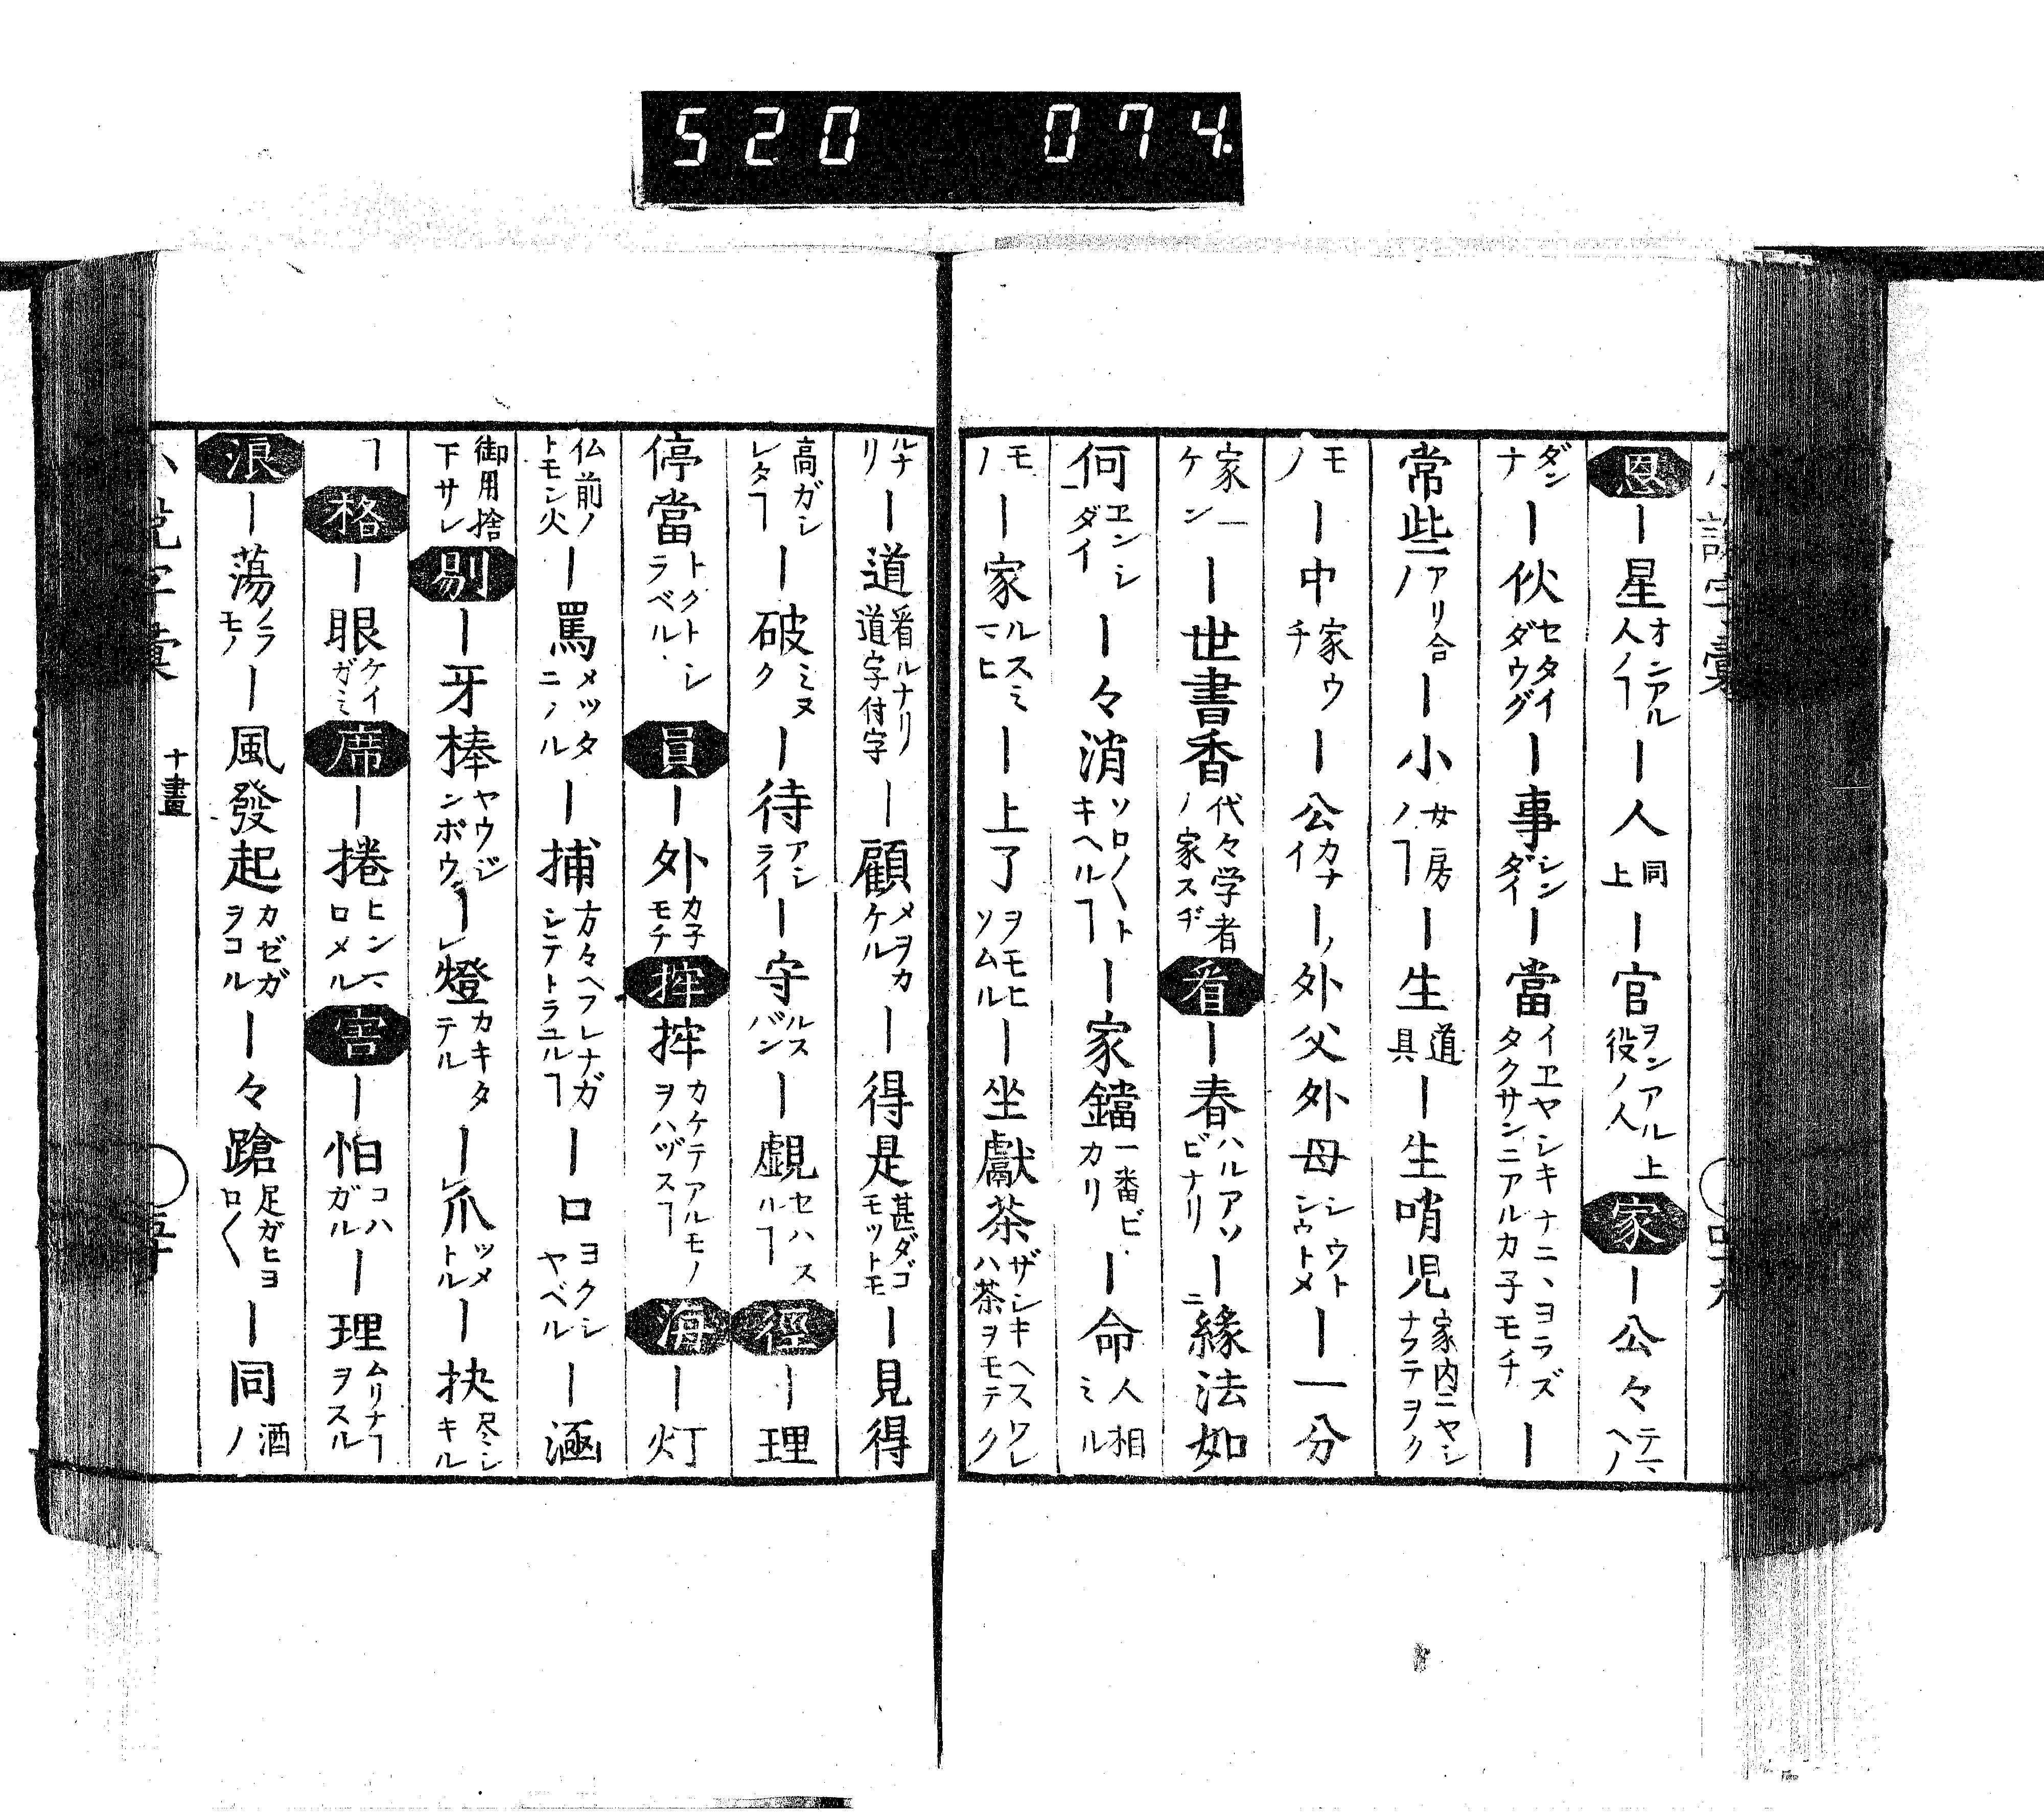 520 074.
恩ー星オンアル人ノヿー人同上ー官ヲンアル上役ノ人家ー公々テヽヘノ
ダンナー伙セタイダウグー事シンダイー當イヱヤシキナニヽヨラズタクサンニアルカ子モチー
常些アリ合ノー小女房ノヿー生道具ー生哨児家内ニヤシナフテヲク
モノー中家ウチー公カナイー外父外母シウトシウトメー一分
家一ケンー世書香代々学者ノ家スヂ看ー春ハルアソビナリー緣法如
何ヱンシダイー々消ソロ〳〵トキヘルヿー家鐺一番ビカリー命人相ミル
モノー家ルスミマヒー上了ヲモヒソムルー坐獻茶ザシキヘスワレハ茶ヲモテク
ルナリー道看ルナリ道ノ字付字ー顧メヲカケルー得是甚ダゴモットモー見得
高ガシレタヿー破ミヌクー待アシライー守ルスバンー覷セハスルヿ徑ー理
停當トクトシラベル員ー外カ子モチ搾搾カケテアルモノヲハヅスヿ海ー灯
仏前ノトモシ火ー罵メッタニノルー捕方々ヘフレナガシテトラユルヿー口ヨクシヤベルー涵
御用捨下サレ剔ー牙棒ヤウジンボウー燈カキタテルー爪ツメトルー抉尽シキル
ヿ格ー眼ケイガミ席ー捲ヒンマロメル害ー怕コハガルー理ムリナヿヲスル
浪ー蕩ノラモノー風發起カゼガヲコルー々蹌足ガヒヨロ〳〵ー同酒ノ
十畫